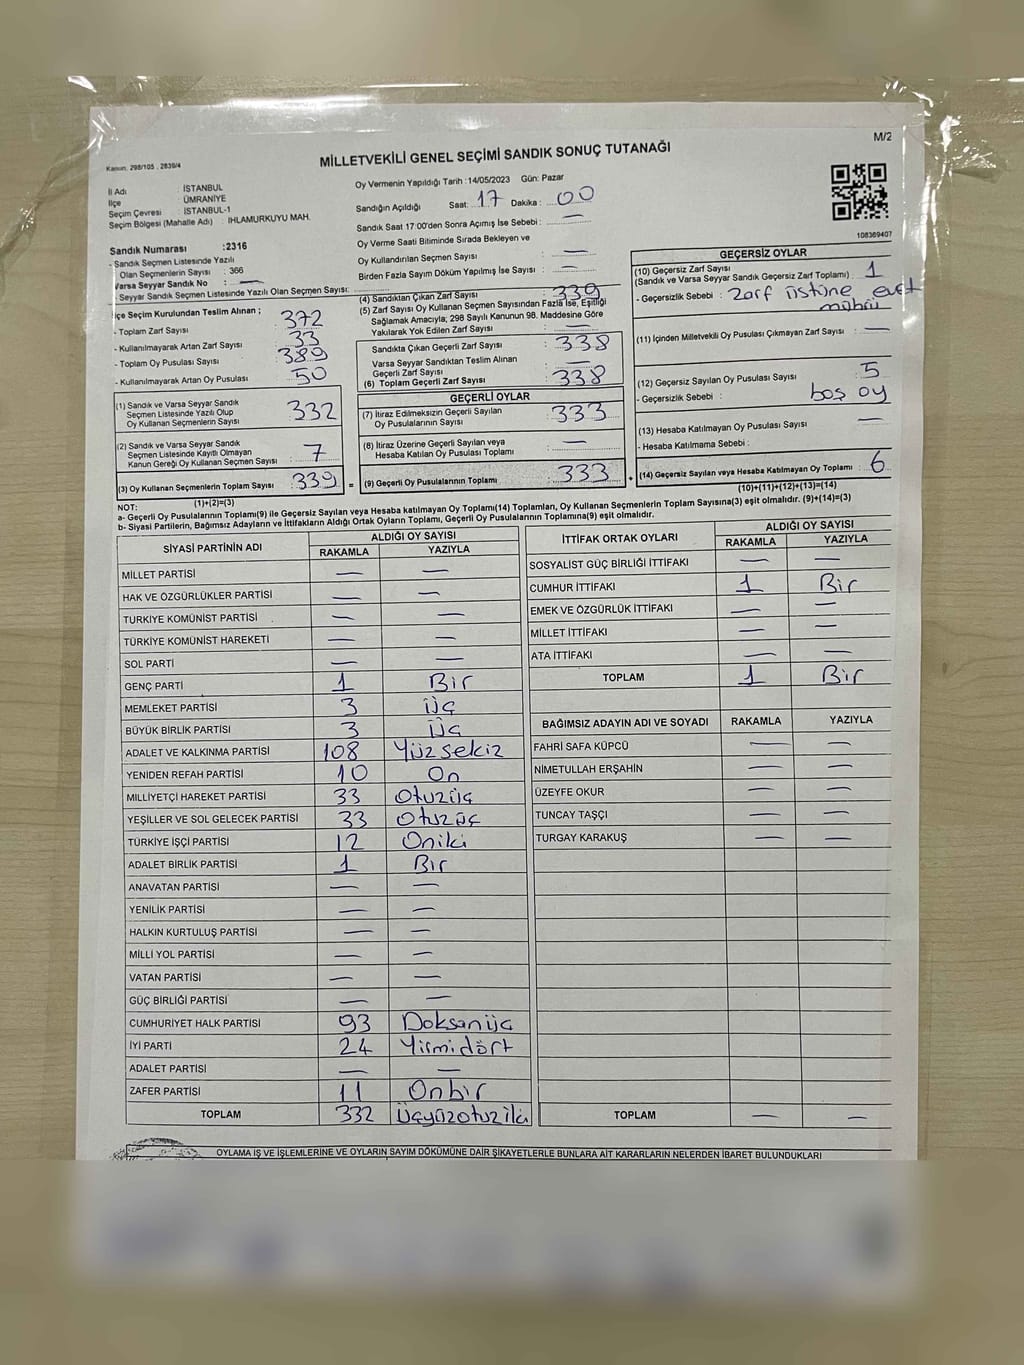 M/2
Kanun: 298/105 . 2839/4
MİLLETVEKİLİ GENEL SEÇİMİ SANDIK SONUÇ TUTANAĞI
İl Adı : İSTANBUL
İlçe : ÜMRANİYE
Seçim Çevresi : İSTANBUL-1
Seçim Bölgesi (Mahalle Adı) : IHLAMURKUYU MAH.
Sandık Numarası :2316
- Sandık Seçmen Listesinde Yazılı
Olan Seçmenlerin Sayısı : 366
Varsa Seyyar Sandık No : —
- Seyyar Sandık Seçmen Listesinde Yazılı Olan Seçmen Sayısı:
Oy Vermenin Yapıldığı Tarih :14/05/2023 Gün: Pazar
Sandığın Açıldığı Saat: 17 Dakika : 00
Sandık Saat 17:00'den Sonra Açımış İse Sebebi : —
Oy Verme Saati Bitiminde Sırada Bekleyen ve
Oy Kullandırılan Seçmen Sayısı : —
Birden Fazla Sayım Döküm Yapılmış İse Sayısı : —
108369407
İlçe Seçim Kurulundan Teslim Alınan ;
- Toplam Zarf Sayısı : 372
- Kullanılmayarak Artan Zarf Sayısı : 33
- Toplam Oy Pusulası Sayısı : 389
- Kullanılmayarak Artan Oy Pusulası : 50
(1) Sandık ve Varsa Seyyar Sandık
Seçmen Listesinde Yazılı Olup
Oy Kullanan Seçmenlerin Sayısı : 332
(2) Sandık ve Varsa Seyyar Sandık
Seçmen Listesinde Kayıtlı Olmayan
Kanun Gereği Oy Kullanan Seçmen Sayısı : 7
(3) Oy Kullanan Seçmenlerin Toplam Sayısı : 339
(1)+(2)=(3)
(4) Sandıktan Çıkan Zarf Sayısı : 339
(5) Zarf Sayısı Oy Kullanan Seçmen Sayısından Fazla İse, Eşitliği
Sağlamak Amacıyla; 298 Sayılı Kanunun 98. Maddesine Göre
Yakılarak Yok Edilen Zarf Sayısı : —
Sandıkta Çıkan Geçerli Zarf Sayısı : 338
Varsa Seyyar Sandıktan Teslim Alınan
Geçerli Zarf Sayısı : —
(6) Toplam Geçerli Zarf Sayısı : 338
GEÇERLİ OYLAR
(7) İtiraz Edilmeksizin Geçerli Sayılan
Oy Pusulalarının Sayısı : 333
(8) İtiraz Üzerine Geçerli Sayılan veya
Hesaba Katılan Oy Pusulası Toplamı : —
(9) Geçerli Oy Pusulalarının Toplamı : 333
GEÇERSİZ OYLAR
(10) Geçersiz Zarf Sayısı
(Sandık ve Varsa Seyyar Sandık Geçersiz Zarf Toplamı) : 1
- Geçersizlik Sebebi : Zarf üstüne evet
mührü
(11) İçinden Milletvekili Oy Pusulası Çıkmayan Zarf Sayısı : —
(12) Geçersiz Sayılan Oy Pusulası Sayısı : 5
- Geçersizlik Sebebi : boş oy
(13) Hesaba Katılmayan Oy Pusulası Sayısı : —
- Hesaba Katılmama Sebebi :
(14) Geçersiz Sayılan veya Hesaba Katılmayan Oy Toplamı : 6
(10)+(11)+(12)+(13)=(14)
NOT:
a- Geçerli Oy Pusulalarının Toplamı(9) ile Geçersiz Sayılan veya Hesaba katılmayan Oy Toplamı(14) Toplamları, Oy Kullanan Seçmenlerin Toplam Sayısına(3) eşit olmalıdır. (9)+(14)=(3)
b- Siyasi Partilerin, Bağımsız Adayların ve İttifakların Aldığı Ortak Oyların Toplamı, Geçerli Oy Pusulalarının Toplamına(9) eşit olmalıdır.
SİYASİ PARTİNİN ADI ALDIĞI OY SAYISI
RAKAMLA YAZIYLA
MİLLET PARTİSİ — —
HAK VE ÖZGÜRLÜKLER PARTİSİ — —
TÜRKİYE KOMÜNİST PARTİSİ — —
TÜRKİYE KOMÜNİST HAREKETİ — —
SOL PARTİ — —
GENÇ PARTİ 1 Bir
MEMLEKET PARTİSİ 3 üç
BÜYÜK BİRLİK PARTİSİ 3 üç
ADALET VE KALKINMA PARTİSİ 108 Yüzsekiz
YENİDEN REFAH PARTİSİ 10 On
MİLLİYETÇİ HAREKET PARTİSİ 33 Otuzüç
YEŞİLLER VE SOL GELECEK PARTİSİ 33 Otuzüç
TÜRKİYE İŞÇİ PARTİSİ 12 Oniki
ADALET BİRLİK PARTİSİ 1 Bir
ANAVATAN PARTİSİ — —
YENİLİK PARTİSİ — —
HALKIN KURTULUŞ PARTİSİ — —
MİLLİ YOL PARTİSİ — —
VATAN PARTİSİ — —
GÜÇ BİRLİĞİ PARTİSİ — —
CUMHURİYET HALK PARTİSİ 93 Doksanüç
İYİ PARTİ 24 Yirmidört
ADALET PARTİSİ — —
ZAFER PARTİSİ 11 Onbir
TOPLAM 332 Üçyüzotuziki
İTTİFAK ORTAK OYLARI ALDIĞI OY SAYISI
RAKAMLA YAZIYLA
SOSYALİST GÜÇ BİRLİĞİ İTTİFAKI — —
CUMHUR İTTİFAKI 1 Bir
EMEK VE ÖZGÜRLÜK İTTİFAKI — —
MİLLET İTTİFAKI — —
ATA İTTİFAKI — —
TOPLAM 1 Bir
BAĞIMSIZ ADAYIN ADI VE SOYADI RAKAMLA YAZIYLA
FAHRİ SAFA KÜPCÜ — —
NİMETULLAH ERŞAHİN — —
ÜZEYFE OKUR — —
TUNCAY TAŞÇI — —
TURGAY KARAKUŞ — —
TOPLAM — —
OYLAMA İŞ VE İŞLEMLERİNE VE OYLARIN SAYIM DÖKÜMÜNE DAİR ŞİKAYETLERLE BUNLARA AİT KARARLARIN NELERDEN İBARET BULUNDUKLARI